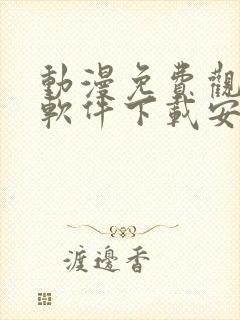 動漫免費觀
軟件下載安
渡邊香